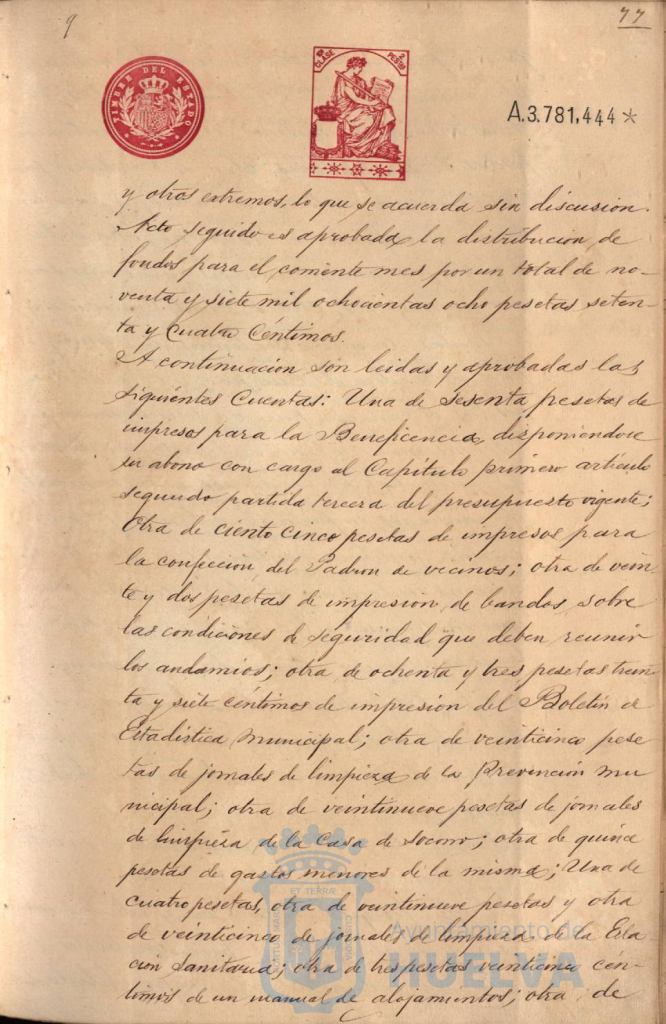 9
77
TIMBRE DEL ESTADO
10ª CLASE
2 PESETAS
A.3.781,444*
y otros extremos, lo que se acuerda sin discusion.
Acto seguido es aprobada la distribucion de
fondos para el corriente mes por un total de no-
venta y siete mil ochocientas ocho pesetas seten-
ta y cuatro céntimos.
A continuación son leidas y aprobadas las
siguientes cuentas: Una de sesenta pesetas de
impresos para la Beneficencia, disponiendose
su abono con cargo al Capítulo primero artículo
segundo partida tercera del presupuesto vigente;
otra de ciento cinco pesetas de impresos para
la confección del Padron de vecinos; otra de vein-
te y dos pesetas de impresion de bandos sobre
las condiciones de seguridad que deben reunir
los andamios; otra de ochenta y tres pesetas trein-
ta y siete céntimos de impresion del Boletin de
Estadistica Municipal; otra de veinticinco pese
tas de jornales de limpieza de la Prevención mu
nicipal; otra de veintinueve pesetas de jornales
de limpieza de la Casa de Socorro; otra de quince
pesetas de gastos menores de la misma; Una de
cuatro pesetas, otra de veintinueve pesetas y otra
de veinticinco de jornales de limpieza de la Esta
ción Sanitaria; otra de tres pesetas veinticinco cén-
timos de un manual de alojamientos; otra de
Ayuntamiento de
HUELVA